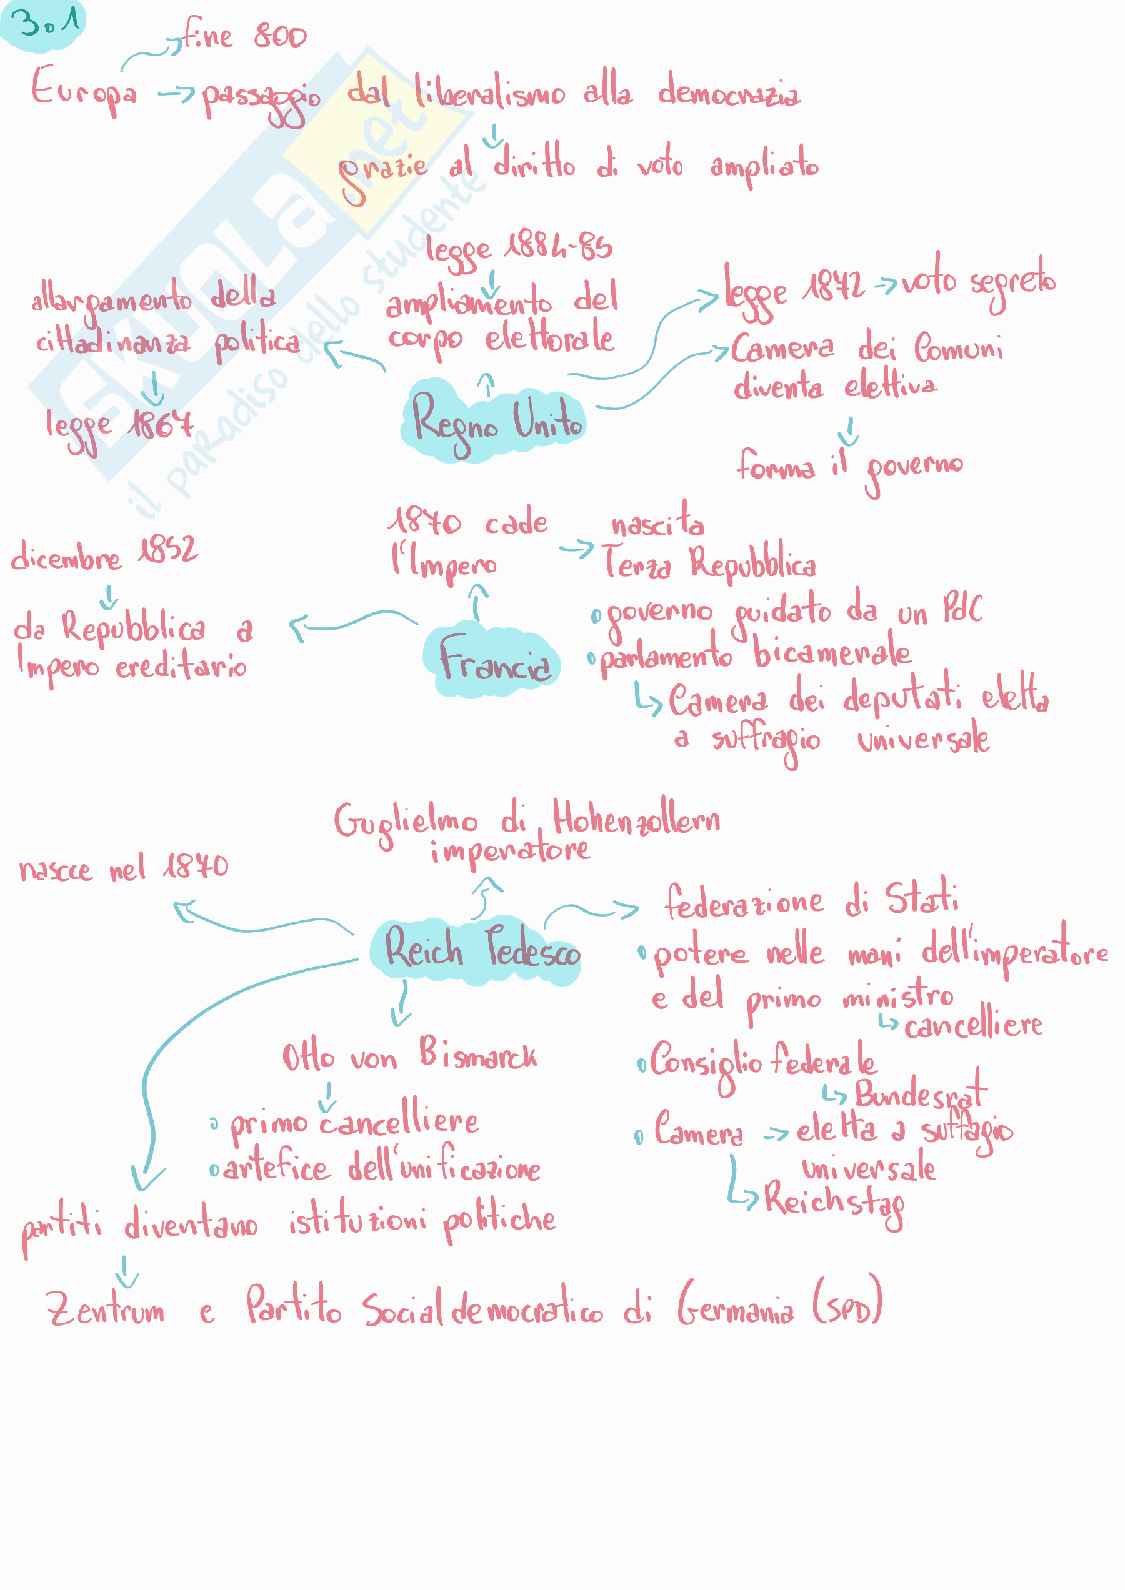 3.1
fine 800
Europa → passaggio dal liberalismo alla democrazia
grazie al diritto di voto ampliato
legge 1884-85
ampliamento del
corpo elettorale
allargamento della
cittadinanza politica
legge 1867
legge 1872 → voto segreto
Camera dei Comuni
diventa elettiva
forma il governo
Regno Unito
1870 cade
l'Impero
nascita
Terza Repubblica
governo guidato da un PdC
parlamento bicamerale
Camera dei deputati eletta
a suffragio universale
dicembre 1852
da Repubblica a
Impero ereditario
Francia
Guglielmo di Hohenzollern
imperatore
nascce nel 1870
Reich Tedesco
federazione di Stati
potere nelle mani dell'imperatore
e del primo ministro
cancelliere
Consiglio federale
Bundesrat
Camera → eletta a suffagio
universale
Reichstag
Otto von Bismarck
primo cancelliere
artefice dell'unificazione
partiti diventano istituzioni politiche
Zentrum e Partito Socialdemocratico di Germania (SPD)
SKUOLA.net
il paRadiso dello studente